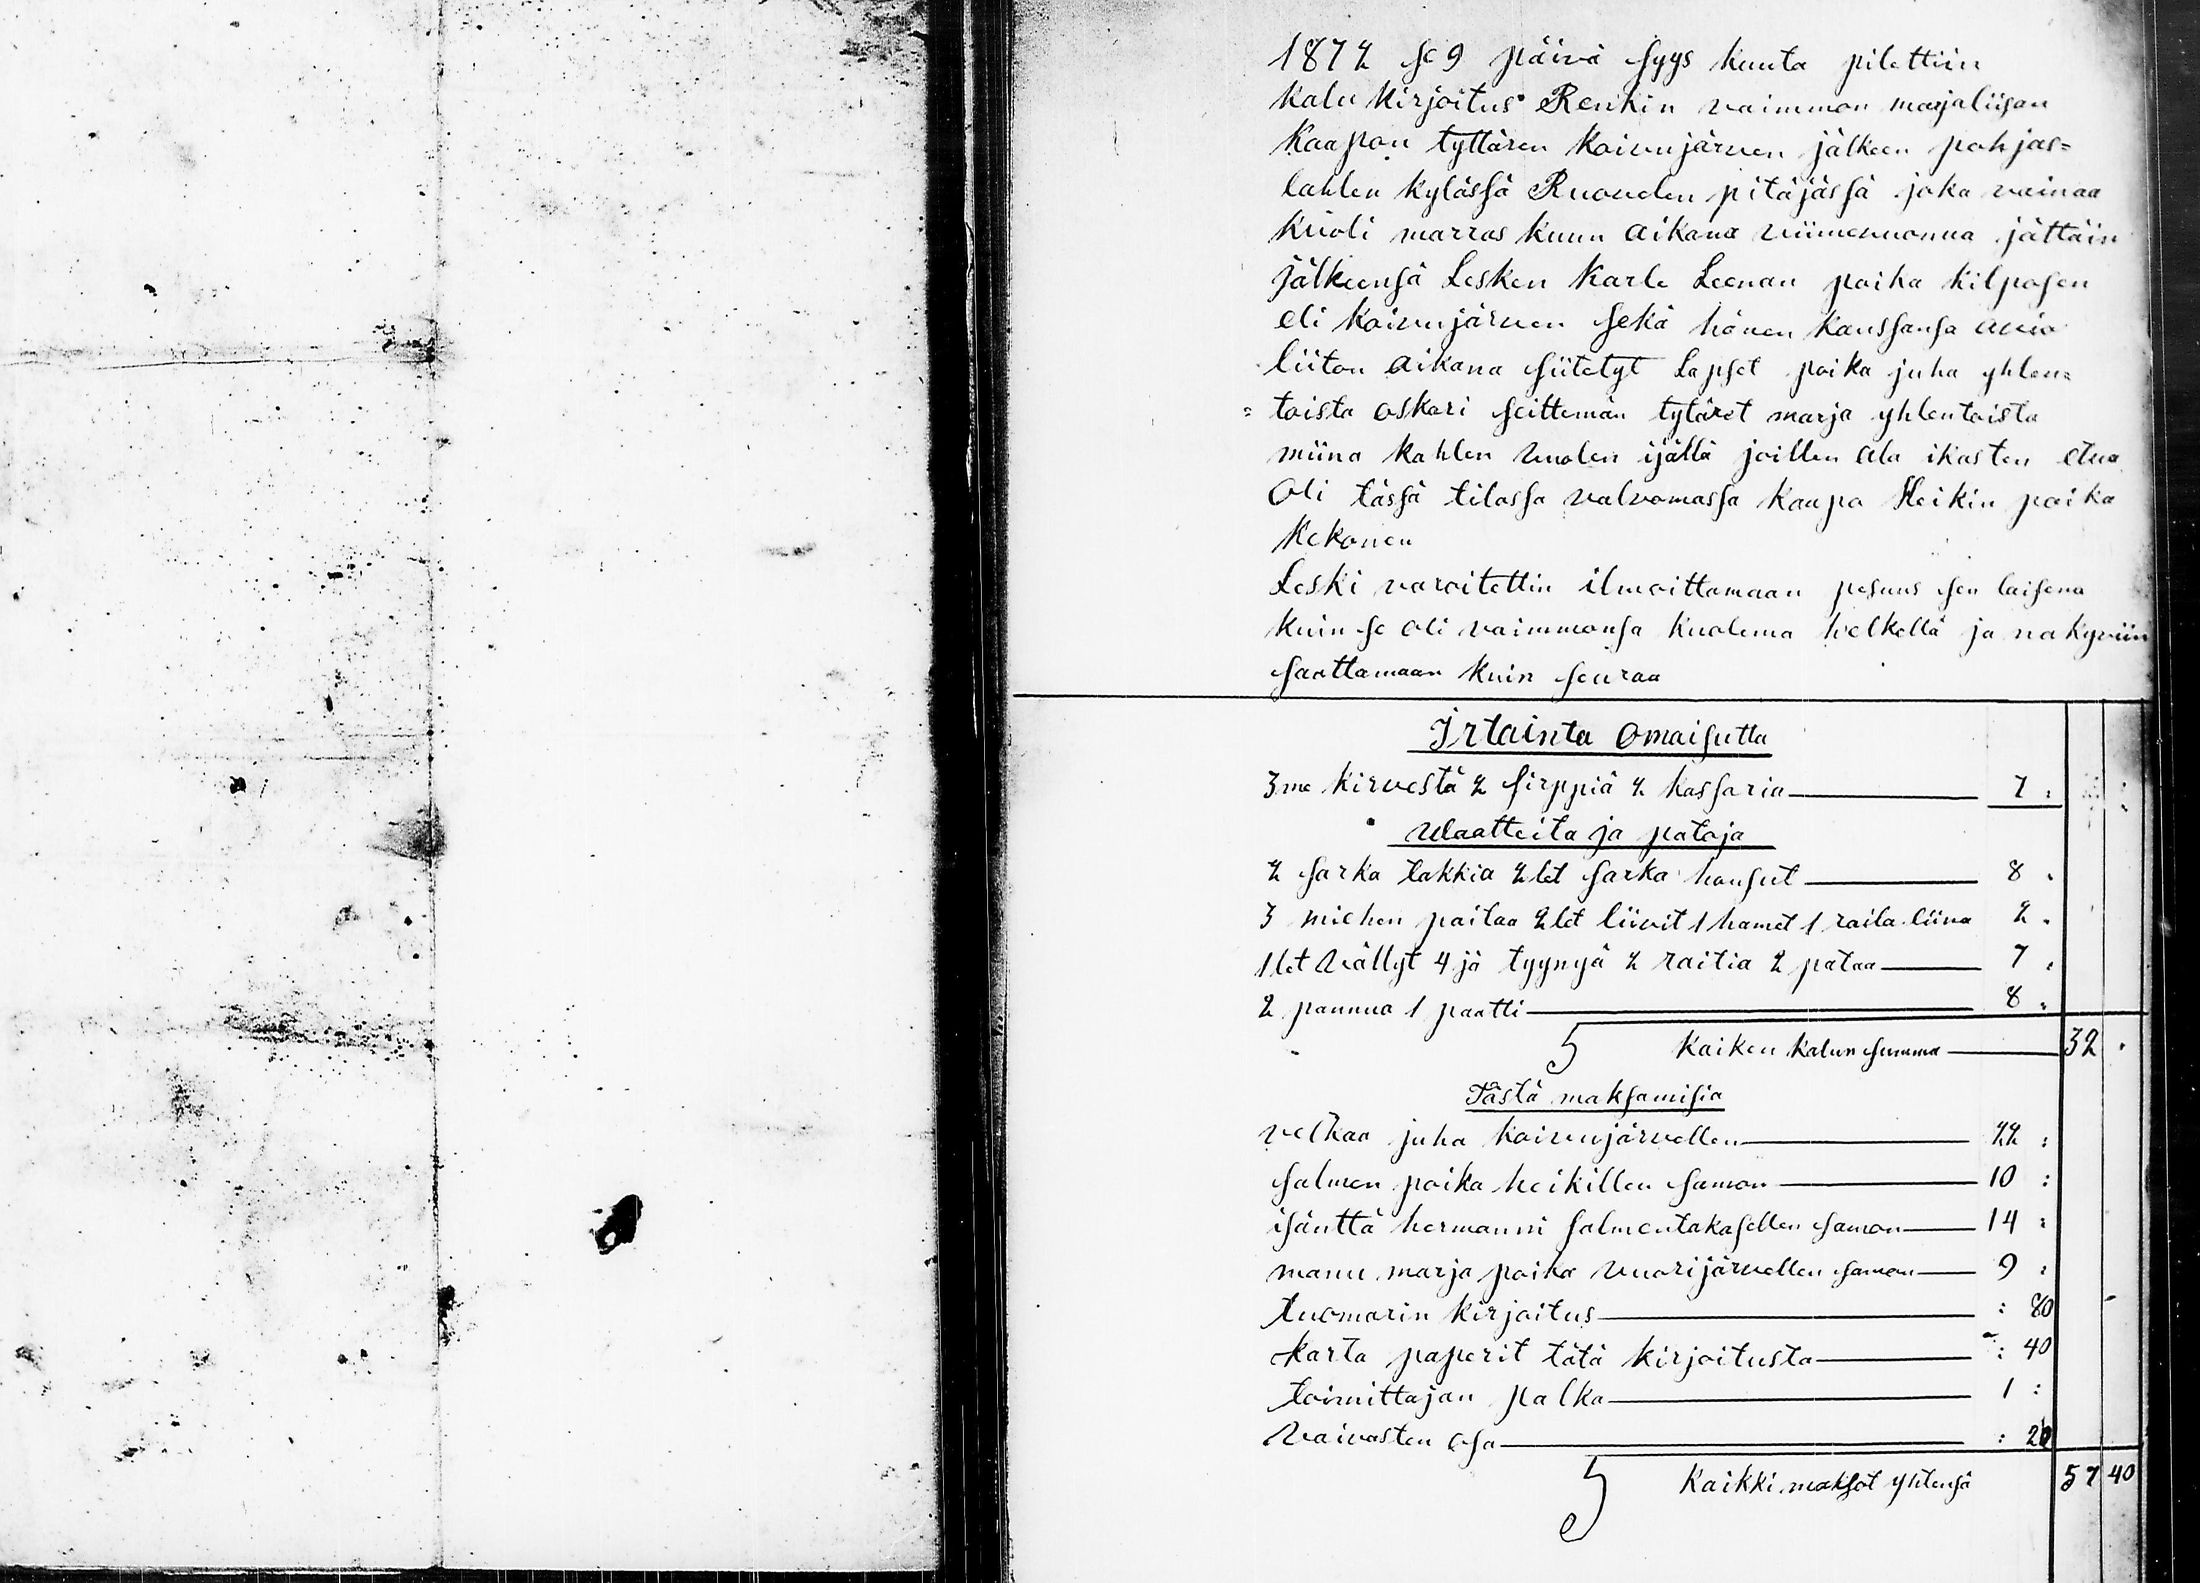 1872 se 9 päivä syys kuuta pilettiin
kalu kirjoitus Renkin vaimmon marjaliisan
Kaapon tyttären Koivujärven jälkeen pohjas=
lahden kylässä Ruoveden pitäjässä joka vainaa
kuoli marras kuun aikana viimevuonna jättäin
jälkeensä Lesken Karle Leenan poika kilposen
eli koivujärven sekä hänen kanssansa avio
liiton aikana siitetyt Lapset poika juha yhlen=
=toista oskari seittemän tytäret marja yhlentoista
miina kahlen vuolen ijällä joillen ala ikasten etua
oli tässä tilassa valvomassa kaapo Heikin poika
Kekonen
Leski varoitettin ilmoittamaan pesuns sen laisena
kuin se oli vaimmonsa kuolema helkellä ja nakyviin
saattamaan kuin seuraa
Irtainta omaisutta
3me kirvestä 2 sirppiä 2 kassaria 7 :
Waatteita ja patoja
2 sarka takkia 2let sarka housut 8 .
3 miehen paitaa 2let liivit 1 hamet 1 raila liina 2 .
1let vällyt 4jä tyynyä 2 raitia 2 pataa 7 .
2 pannua 1 paatti 8 .
S kaiken kalun summa 32 .
Tästä maksamisia
velkaa juha koivujärvellen 22 :
salmen poika heikillen samon 10 :
isänttä hermanni salmentakasellen samon 14 :
manu marja poika vuorijärvellen samon 9 :
tuomarin kirjoitus : 80
karta paperit tätä kirjoitusta : 40
toimittajan palka 1 :
Vaivasten osa : 20
S kaikki maksot yhtensä 57 40